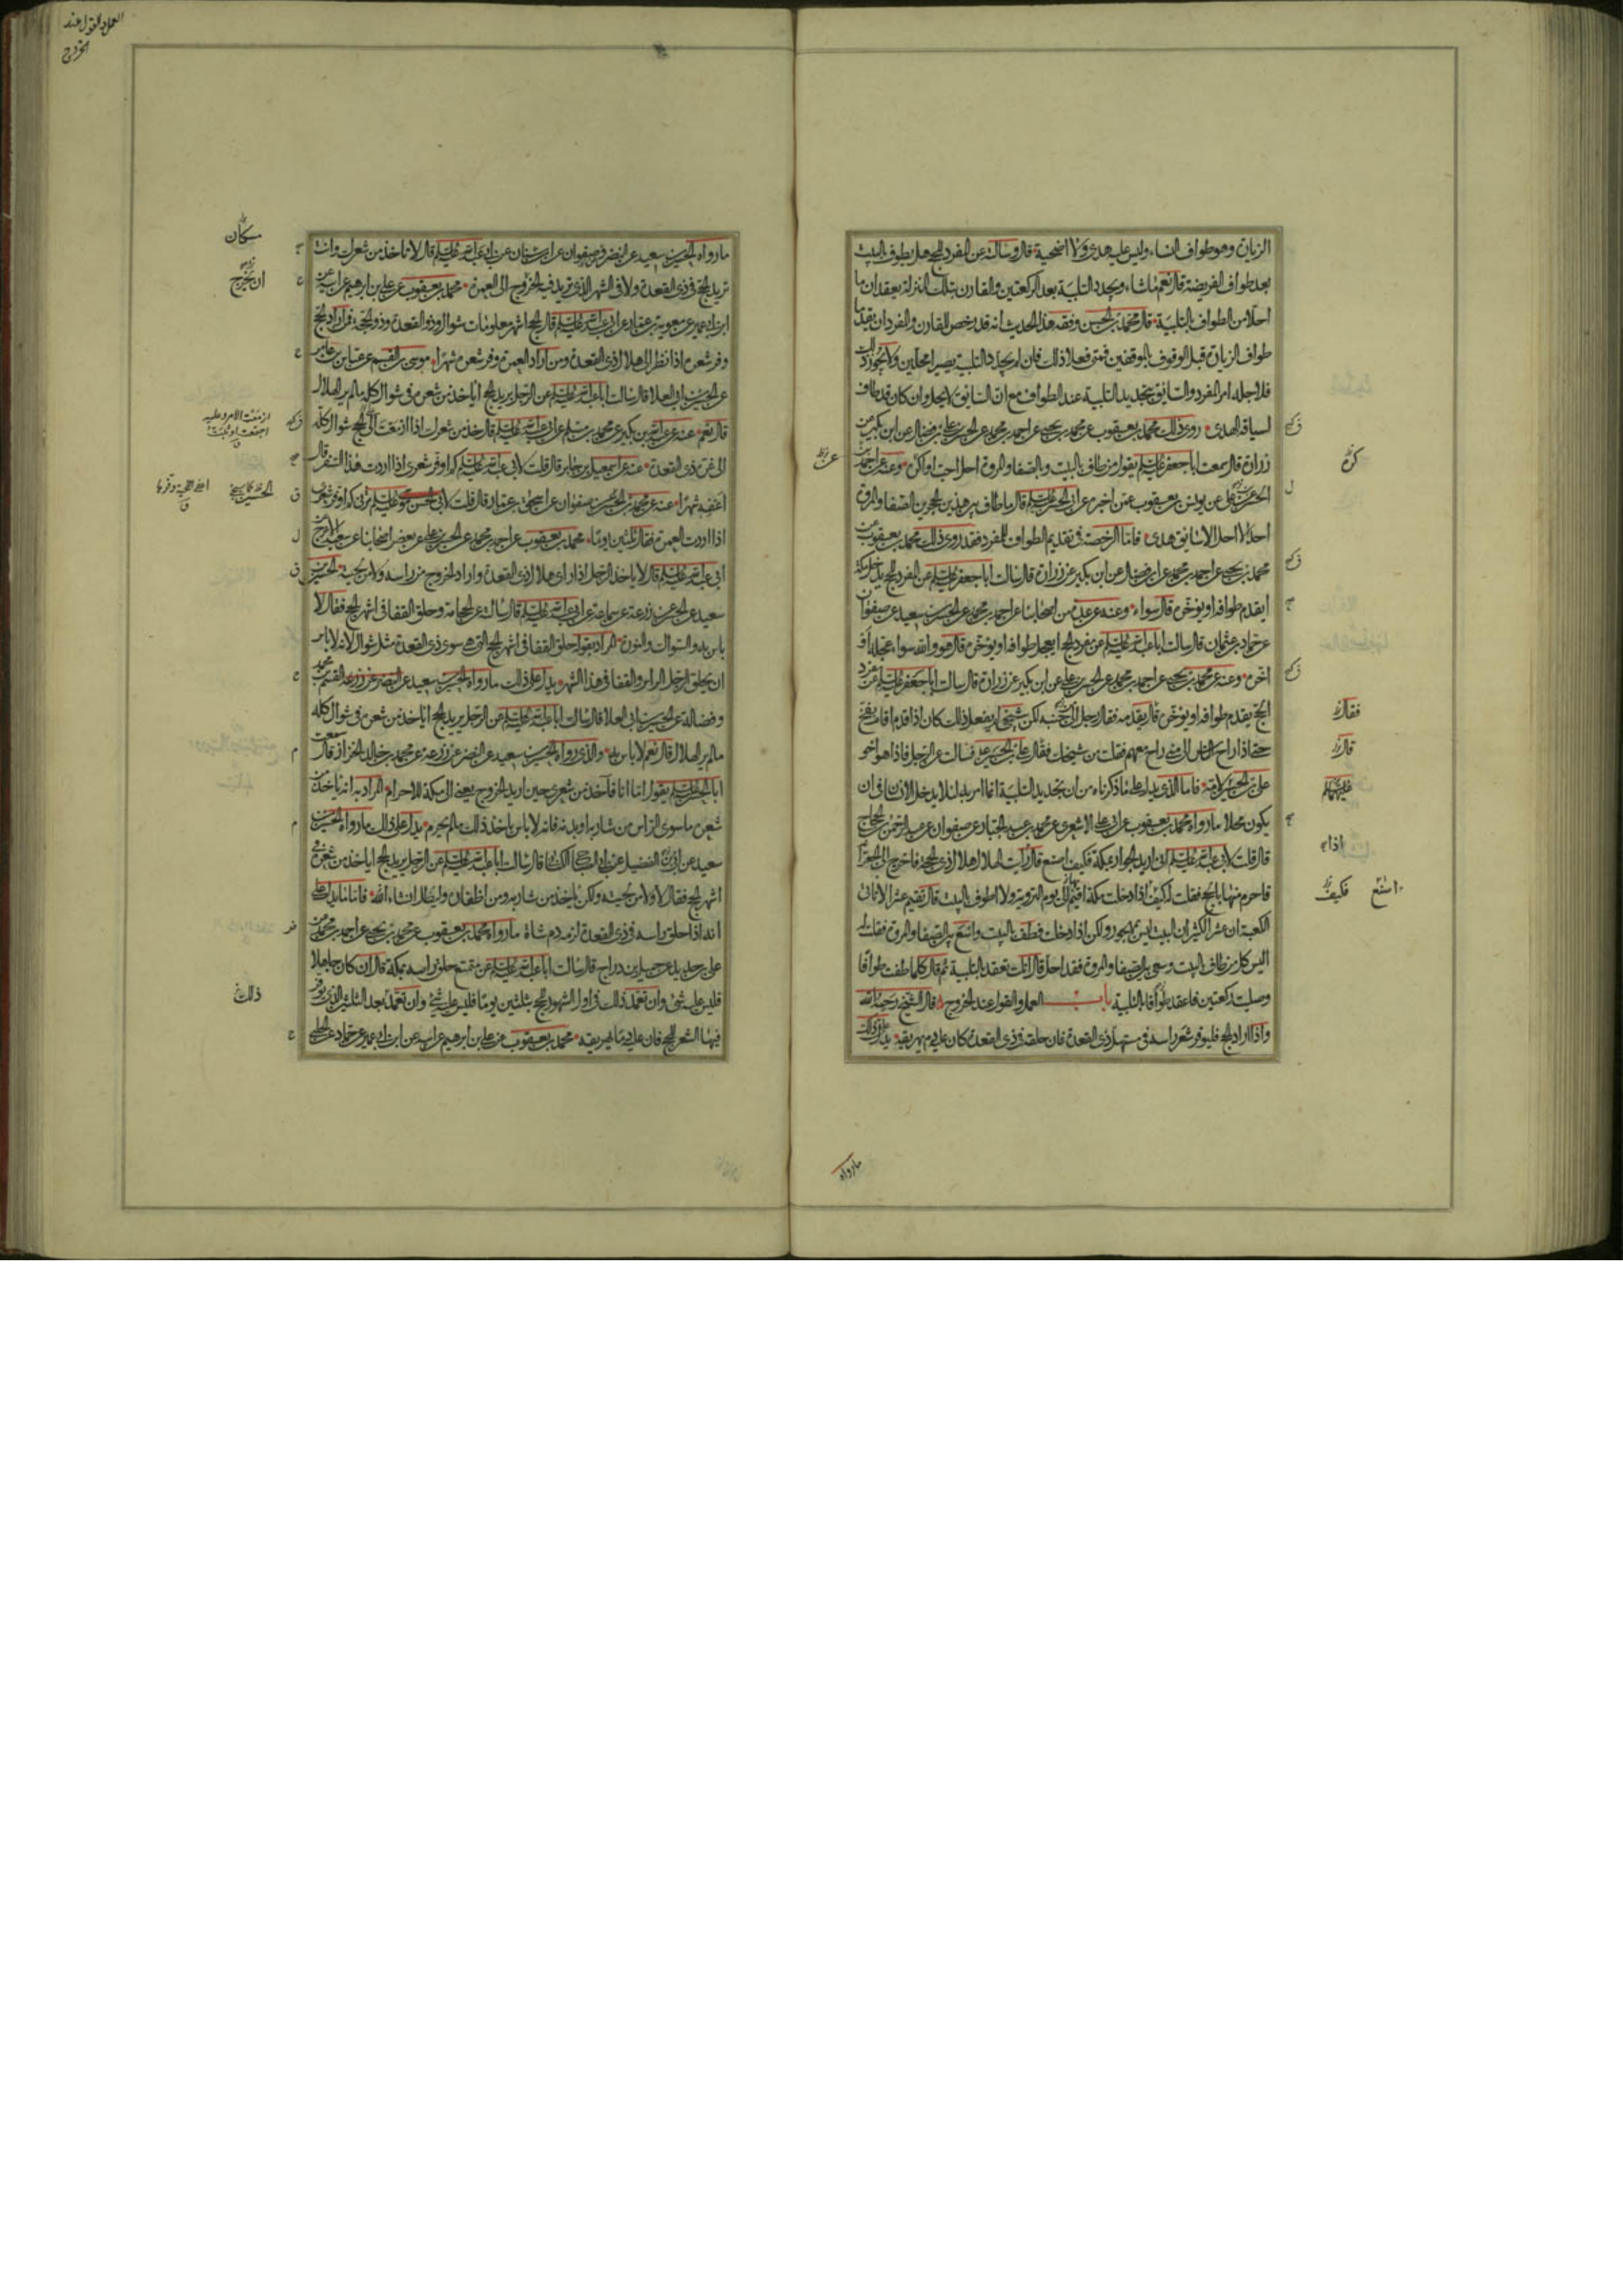 الزيارة وهو طواف النساء وليس عليه هدى ولا اضحية قال وسالته عن المفرد للحج هل يطوف بالبيت
بعد طواف الفريضة قال نعم ماشاء ويجدد التلبية بعد الركعتين والقارن بتلك المنزلة يعقدان ما
احلا من الطواف بالتلبية قال محمد بن الحسن وفقه هذا الحديث انه قد رخص للقارن والمفرد ان يقدما
طواف الزيارة قبل الوقوف بالموقفين فمتى فعلا ذلك فان لم يجددا التلبية يصيرا محلين ولا يجوز ذلك
فلاجله امر المفرد والسايق بتجديد التلبية عند الطواف مع ان السايق لا يحل وان كان قد طاف
لسياقه الهدى روى ذلك محمد بن يعقوب عن محمد بن يحيى عن احمد بن محمد عن الحسن بن على بن فضال عن ابن بكير عن
زرارة قال سمعت ابا جعفر عليه السلم يقول من طاف بالبيت وبالصفا والمروة احل احب او كره وعنه عن احمد بن
محمد عن الحسن بن على عن يونس بن يعقوب عمن اخبره عن ابى الحسن عليه السلم قال ما طاف بين هذين الحجرين الصفا والمروة
احد الا احل الا سايق هدى فاما الرخصة فى تقديم الطواف للمفرد فقد روى ذلك محمد بن يعقوب عن
محمد بن يحيى عن احمد بن محمد عن ابن فضال عن ابن بكير عن زرارة قال سالت ابا جعفر عليه السلم عن المفرد للحج يدخل مكة
ايقدم طوافه او يؤخره قال سواء وعنه عن عدة من اصحابنا عن احمد بن محمد عن الحسين بن سعيد عن صفوان
عن حماد بن عثمان قال سالت ابا عبد الله عليه السلم عن مفرد الحج ايعجل طوافه او يؤخره قال هو والله سواء عجله او
اخره وعنه عن محمد بن يحيى عن احمد بن محمد عن الحسن بن على عن ابن بكير عن زرارة قال سالت ابا جعفر عليه السلم عن مفرد
الحج يقدم طوافه او يؤخره قال يقدمه فقال رجل الى جنبه لكن شيخى لم يفعل ذلك كان اذا قدم اقام بفخ
حتى اذا راح الناس الى منى راح معهم فقلت من شيخك فقال على بن الحسين فسالت عن الرجل فاذا هو اخو
على بن الحسين لامه فاما الذى يدل على ما ذكرناه من ان تجديد التلبية انما امر به لئلا يدخل الانسان فى ان
يكون محلا ما رواه محمد بن يعقوب عن ابى على الاشعرى عن محمد بن عبد الجبار عن صفوان عن عبد الرحمن بن الحجاج
قال قلت لابى عبد الله عليه السلم انى اريد الجوار بمكة فكيف اصنع قال رايت الهلال هلال ذى الحجة فاخرج الى الجعرانة
فاحرم منها بالحج فقلت له كيف اذا دخلت مكة اقيم الى يوم التروية ولا اطوف بالبيت قال تقيم عشرا لا تاتى
الكعبة ان عشرا لكثير ان البيت ليس بمهجور ولكن اذا دخلت فطف بالبيت واسع بين الصفا والمروة فقلت له
اليس كل من طاف بالبيت وسعى بين الصفا والمروة فقد احل قال انك تعقد بالتلبية ثم قال كلما طفت طوافا
وصليت ركعتين فاعقد طوافا بالتلبية باب العمل والقول عند الخروج قال الشيخ رحمه الله
واذا اراد الحج فليوفر شعر راسه فى مستهل ذى القعدة فان حلقه فى ذى القعدة كان عليه دم يهريقه يدل على ذلك
ما رواه
كره
فقال
قال
عليهما السلم
اذا
اصنع فكيف
العمل والقول عند
الخروج
ما رواه الحسين بن سعيد عن النضر وصفوان عن ابن سنان عن ابى عبد الله عليه السلم قال لا تاخذ من شعرك وانت
تريد الحج فى ذى القعدة ولا فى الشهر الذى تريد فيه الخروج الى العمرة محمد بن يعقوب عن على بن ابرهيم عن ابيه عن
ابن ابى عمير عن معوية بن عمار عن ابى عبد الله عليه السلم قال الحج اشهر معلومات شوال وذو القعدة وذو الحجة فمن اراد الحج
وفر شعره اذا نظر الى هلال ذى القعدة ومن اراد العمرة وفر شعره شهرا موسى بن القسم عن عباس بن عامر
عن الحسين بن ابى العلا قال سالت ابا عبد الله عليه السلم عن الرجل يريد الحج اياخذ من شعره فى شوال كله ما لم ير الهلال
قال نعم عنه عن عبد الله بن بكير عن محمد بن مسلم عن ابى عبد الله عليه السلم قال خذ من شعرك اذا ازمعت الى الحج شوال كله
الى غرة ذى القعدة عنه عن اسمعيل بن جابر قال قلت لابى عبد الله عليه السلم كم اوفر شعرى اذا اردت هذا السفر قال
اعفه شهرا عنه عن محمد بن الحسين عن صفوان عن اسحق بن عمار قال قلت لابى الحسن موسى عليه السلم مرنى كم اوفر شعرى
اذا اردت العمرة فقال ثلثين يوما محمد بن يعقوب عن احمد بن محمد عن الحسن بن على عن بعض اصحابنا عن سعيد الاعرج عن
ابى عبد الله عليه السلم قال لا ياخذ الرجل اذا راى هلال ذى القعدة واراد الخروج من راسه ولا من لحيته الحسين بن
سعيد عن الحسن عن زرعة عن سماعة عن ابى عبد الله عليه السلم قال سالته عن الحجامة وحلق القفا فى اشهر الحج فقال لا
باس به والسواك والنورة المراد بقوله حلق القفا فى اشهر الحج التى هى سوى ذى القعدة مثل شوال لانه لا باس
ان يحلق الرجل الراس والقفا فى هذا الشهر يدل على ذلك ما رواه الحسين بن سعيد عن النضر عن زرعة القسم بن محمد
وفضالة عن الحسين بن ابى العلا قال سالت ابا عبد الله عليه السلم عن الرجل يريد الحج اياخذ من شعره فى شوال كله
ما لم ير الهلال قال نعم لا باس به والذى رواه الحسين بن سعيد عن النضر عن زرعة عن محمد بن خالد الخزاز قال سمعت
ابا الحسن عليه السلم يقول اما انا فاخذ من شعرى حين اريد الخروج يعنى الى مكة للاحرام المراد به انه ياخذ من
شعره ما سوى الراس من شاربه او بدنه فانه لا باس باخذ ذلك ما لم يحرم يدل على ذلك ما رواه الحسين بن
سعيد عن ابن الفضيل عن ابى الصباح الكنانى قال سالت ابا عبد الله عليه السلم عن الرجل يريد الحج اياخذ من شعره فى
اشهر الحج فقال لا ولا من لحيته ولكن ياخذ من شاربه ومن اظفاره وليطل ان شاء الله فاما ما يدل على
انه اذا حلق راسه فى ذى القعدة لزمه دم شاة ما رواه محمد بن يعقوب عن محمد بن يحيى عن احمد بن محمد عن
على بن حديد عن جميل بن دراج قال سالت ابا عبد الله عليه السلم عن متمتع حلق راسه بمكة قال ان كان جاهلا
فليس عليه شئ وان تعمد ذلك فى اول الشهور للحج بثلثين يوما فليس عليه شئ وان تعمد بعد الثلثين الذى يوفر
فيها الشعر للحج فان عليه دما يهريقه محمد بن يعقوب عن على بن ابرهيم عن ابيه عن ابن ابى عمير عن حماد عن الحلبى
مسكان
ان يخرج
ازمعت الامر وعليه
اجمعت او ثبت
ذلك